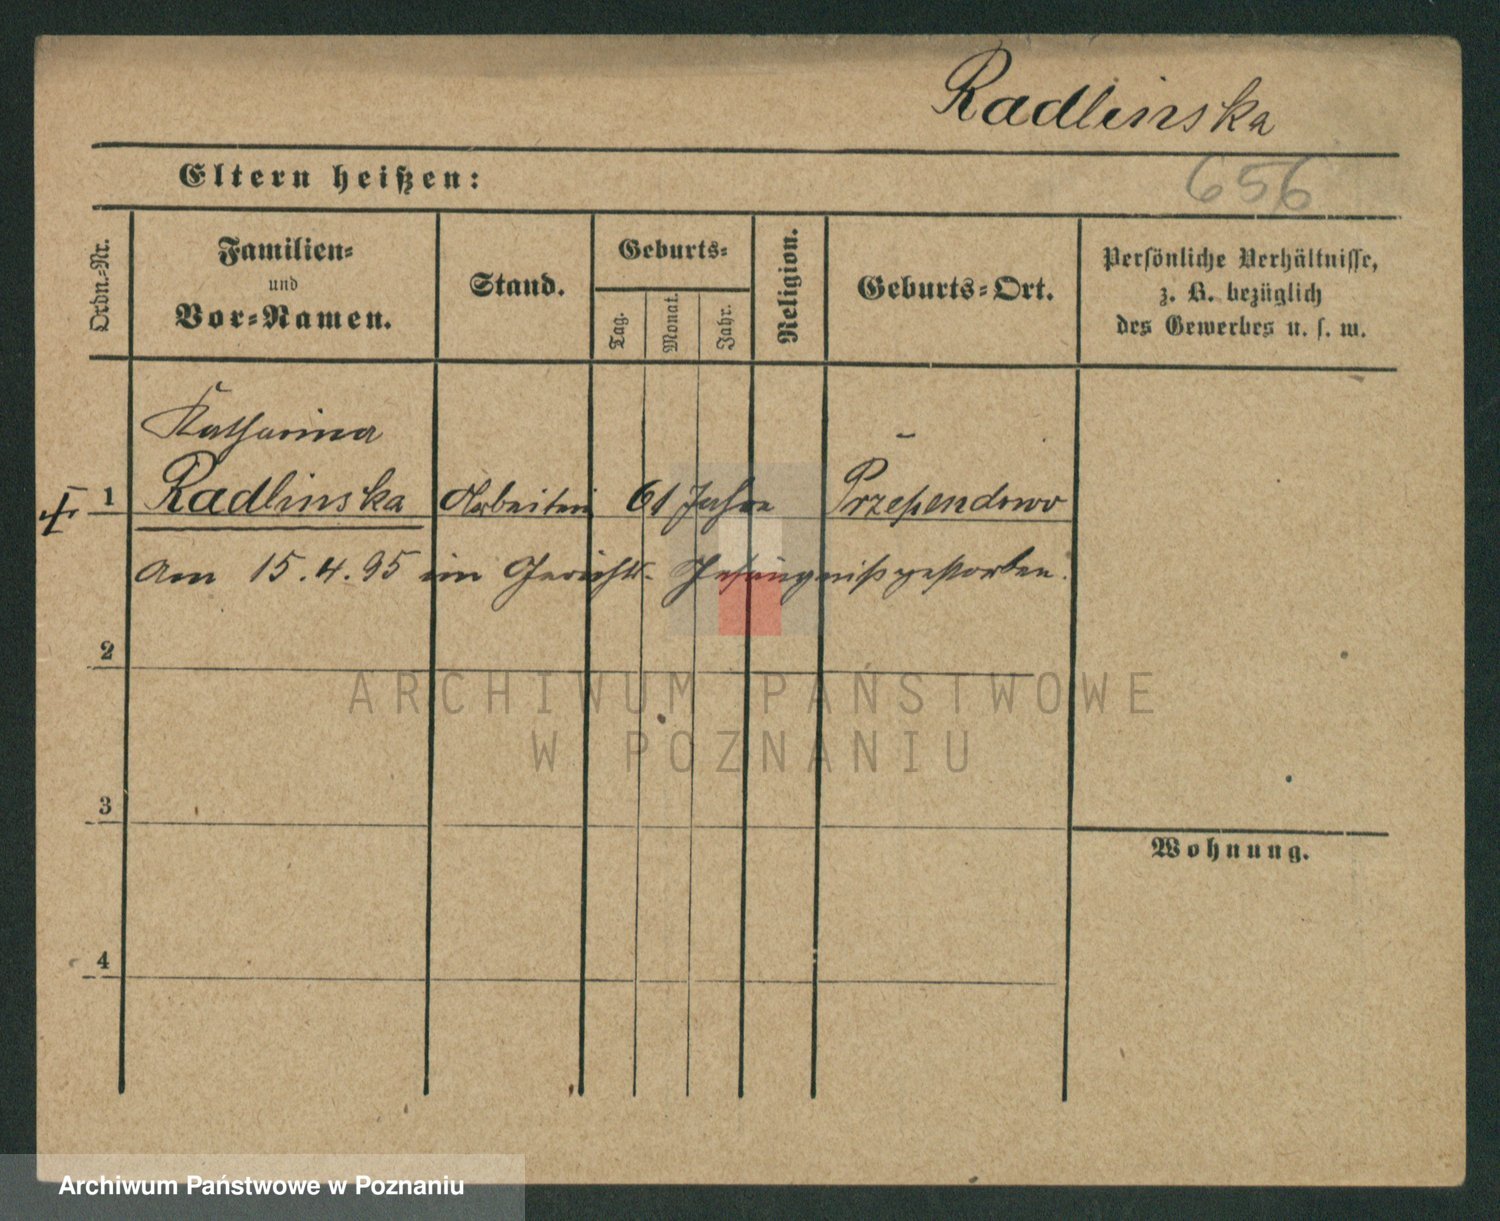 Radlinska
656
Eltern heißen:
Ordn.-Nr.
Familien-
und
Vor-Namen.
Stand.
Geburts-
Tag.
Monat.
Jahr.
Religion.
Geburts-Ort.
Persönliche Verhältnisse,
z. B. bezüglich
des Gewerbes u. s. w.
Katharina
1 Radlinska Arbeiterin 61 Jahre Przependowo
am 15.4.95 im Gerichts-Gefängniß gestorben.
2
ARCHIWUM PAŃSTWOWE
W POZNANIU
3
Wohnung.
4
Archiwum Państwowe w Poznaniu